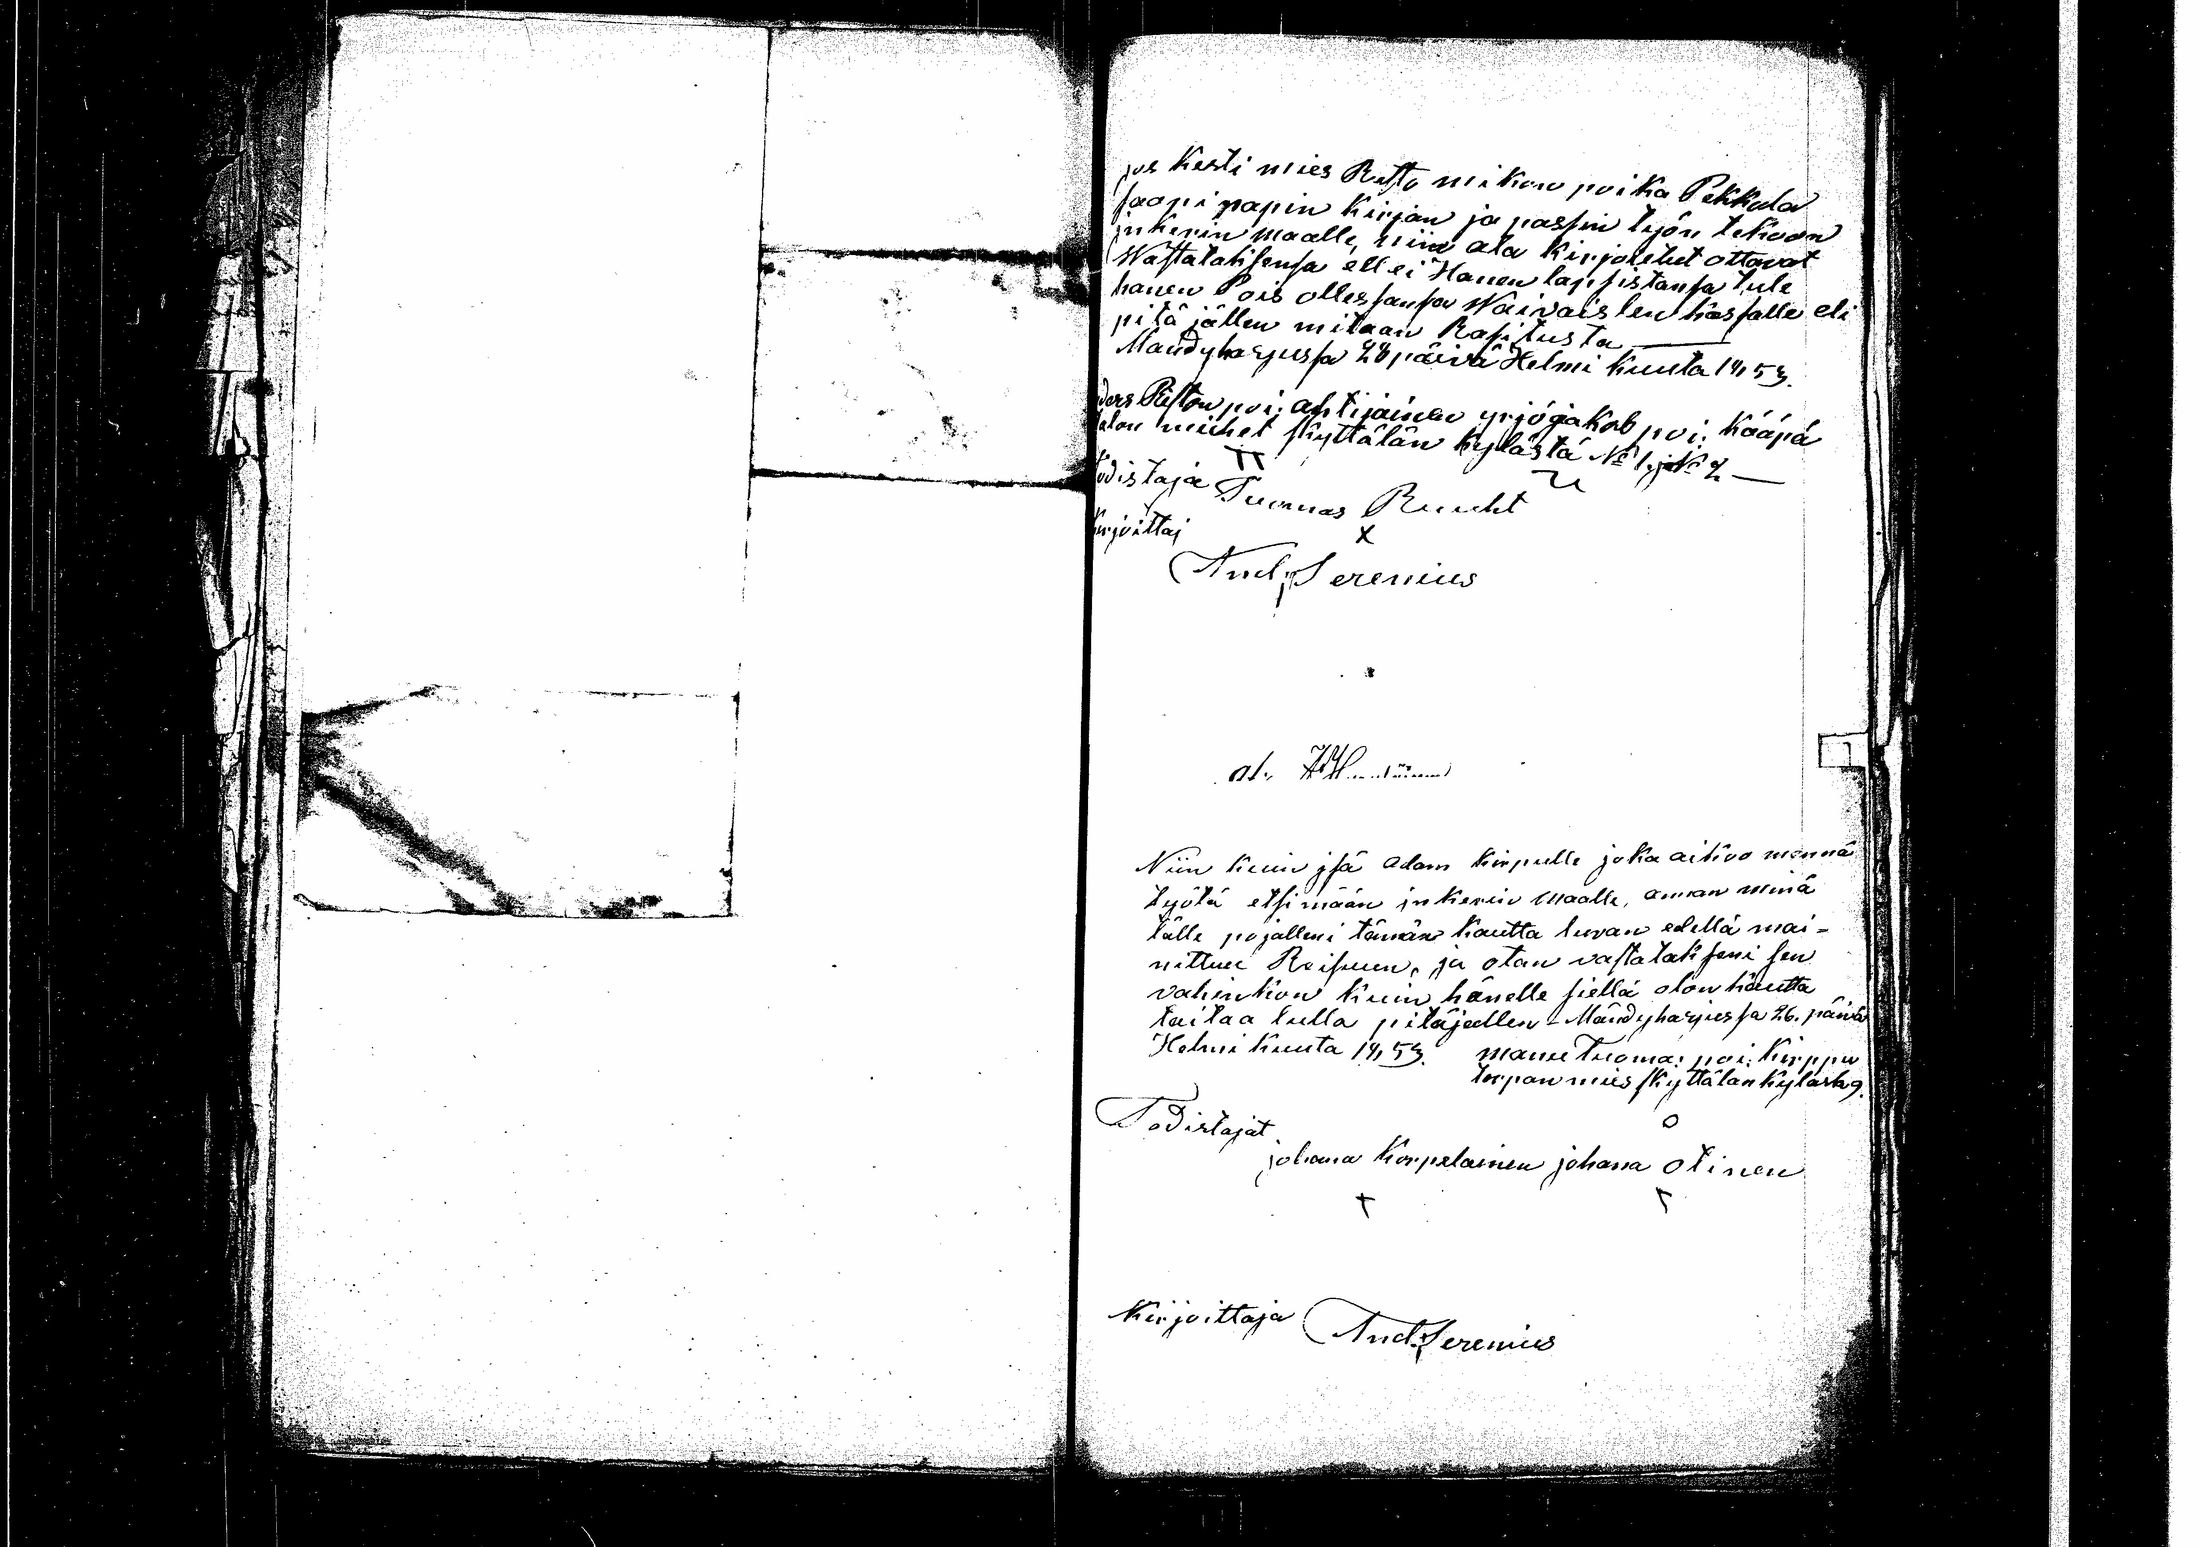 jos Kesti mies Risto mikon poika Pekkula
saapi papin kirjan ja passin työn tekoon
inkerin maalle, niin ala kirjoitetut ottavat
Wastataksensa ellei Hanen lapsistansa tule
hanen Pois ollessansa Waivaisten kassalle eli
pitäjällen mitaan Rasitusta
Mandyharjussa 28 päivä Helmi kuuta 1853.
ders Riston poi. ahtijainen yrjö jakob poi. Kääpä
alon miihet Kyttälän kylästä No 1, ja No 2
todistaja Tuomas Ruuht
kirjoittaj x
And. Serenius
Niin kuin isä adam kirpulle joka aikoo mennä
työtä etsimään inkerin maalle, annan minä
tälle pojalleni tämän kautta luvan edellä mai-
nittuu Reisuun, ja otan vastatakseni sen
vahinkon kuin hänelle siellä olon kautta
taitaa tulla pitäjällen - Mändyharjussa 26. päivä
Helmi kuuta 1853. manu Tuoma: poi. Kirppu
torpan mies Kyttälän kylästä 9.
Todistajat
johana Korpelainen johana otinen
Kirjoittaja And. Serenius